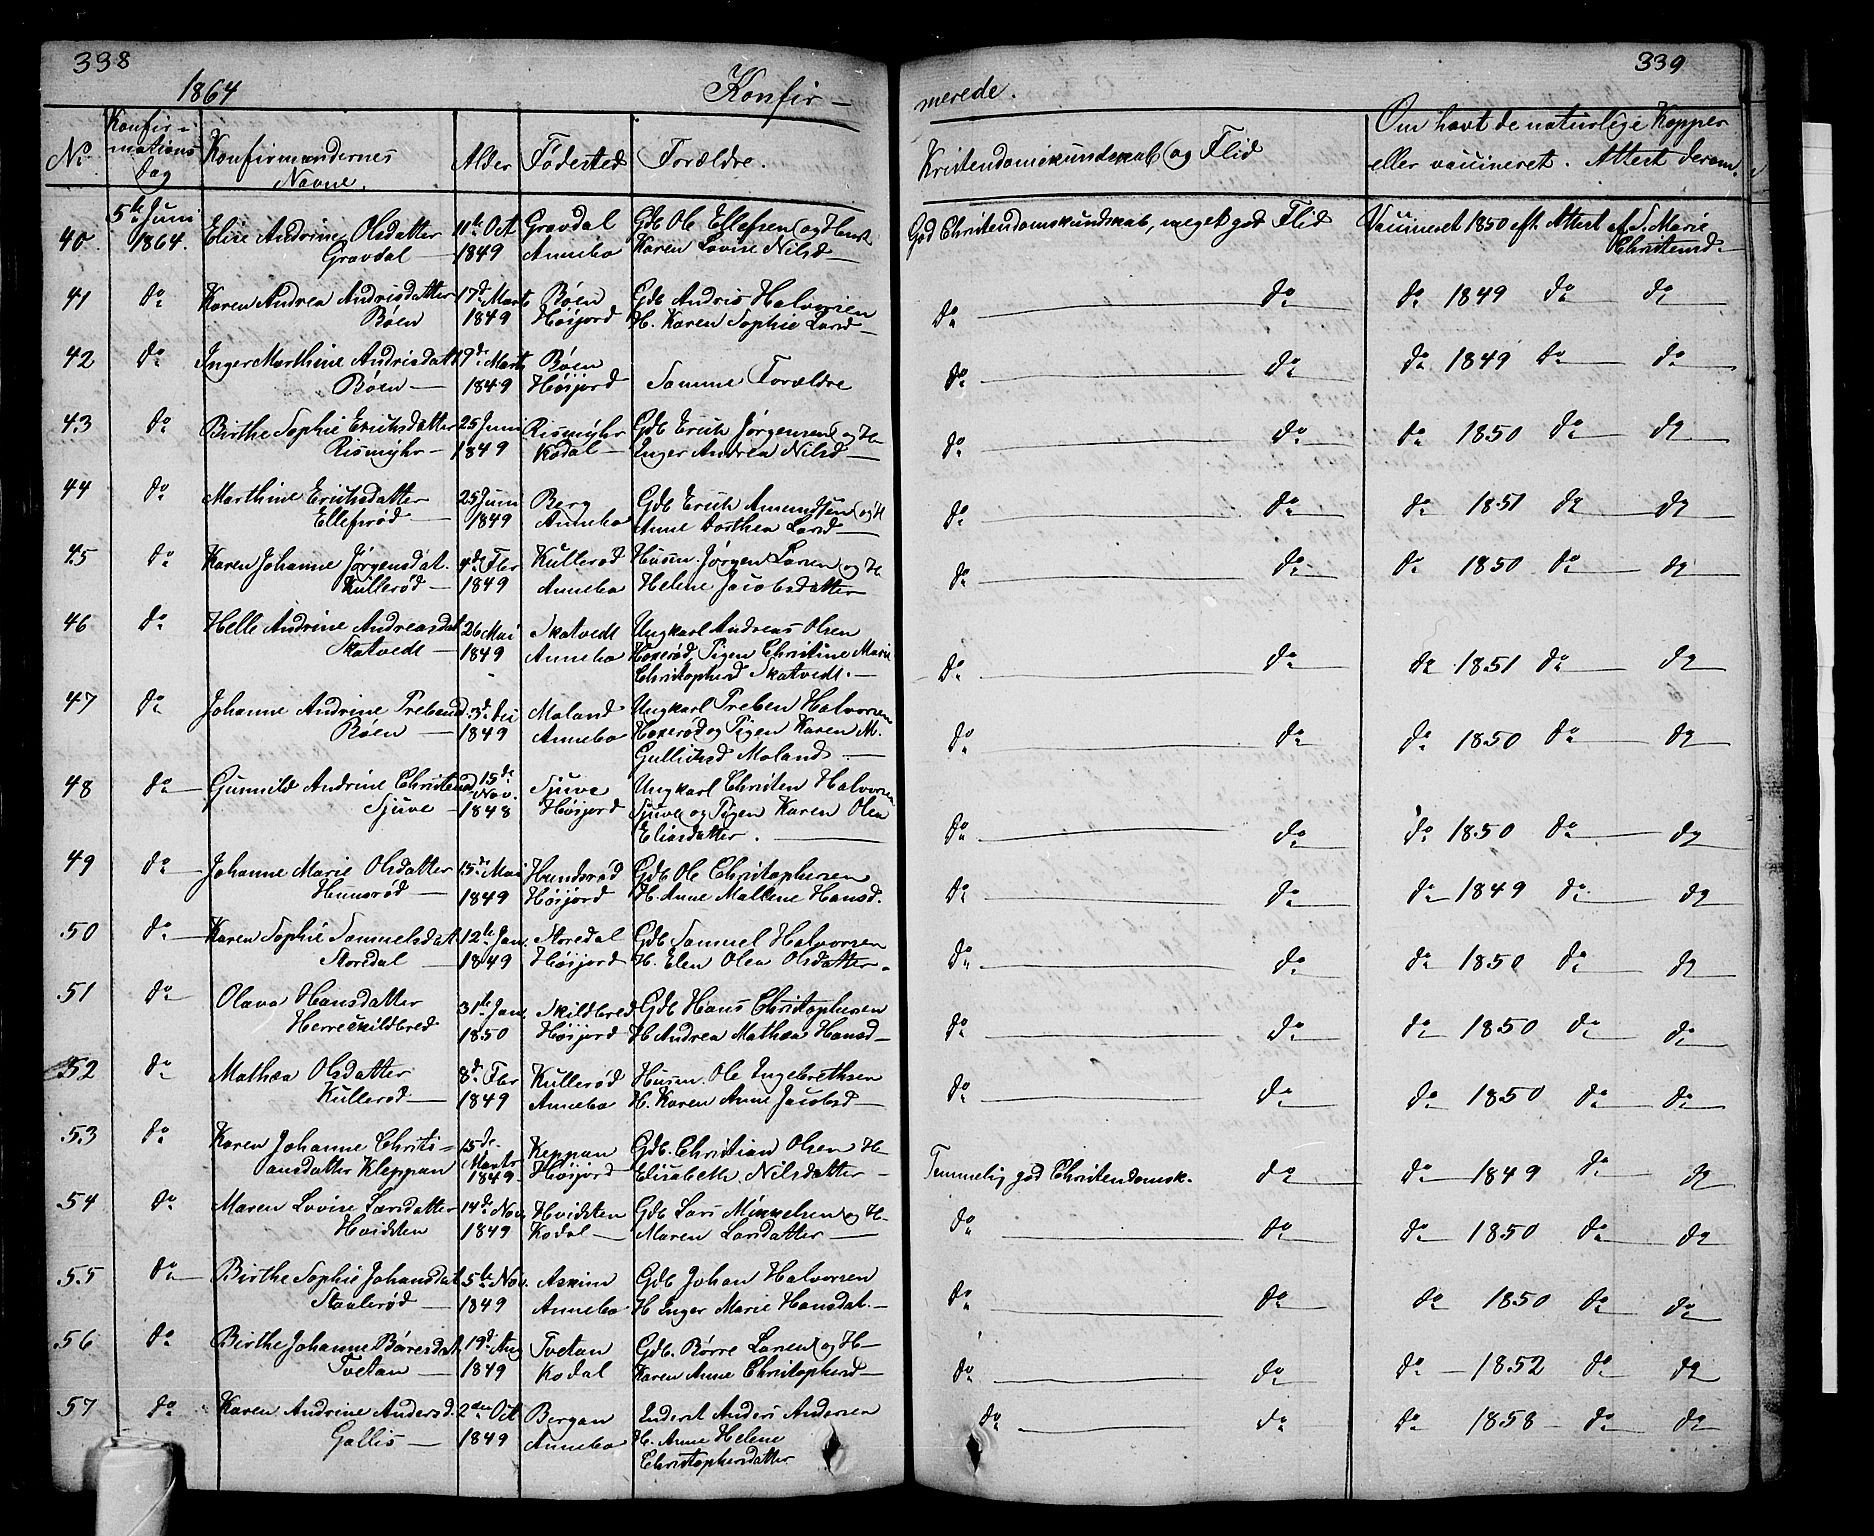 338
1864 Konfir-
No Konfir-mations Dag Konfirmandernes Navne. Alder Fødested Forældre.
40 5te Juni 1864. Elise Andrine Olsdatter 11te Oct Gravdal Gdb Ole Ellefsen og Hust
Gravdal 1849 Annebo Karen Lovise Nilsd
41 do Karen Andrea Andrisdatter 17de Marts Bøen Gdb Andris Halvorsen
Bøen 1849 Høijord H. Karen Sophie Larsd
42 do Inger Marthine Andrisdatt 9de Marts Bøen
Bøen 1849 Høijord Samme Forældre
43 do Birthe Sophie Erichsdatter 25 Juni Rismyhr Gdb Erich Jørgensen og H
Rismyhr 1849 Kodal Inger Andrea Nilsd
44 do Marthine Erichsdatter 25 Juni Berg Gdb Erich Amundsen og H
Ellefsrød 1849 Annebo Anne Dorthea Larsd
45 do Karen Johanne Jørgensdat. 4de Fbr Kullerød Husm. Jørgen Larsen og H.
Kullerød 1849 Annebo Helene Jacobsdatter
46 do Helle Andrine Andreasdat 26 Mai Skatvedt Ungkarl Andreas Olsen
Skatvedt 1849 Annebo Haxerød, Pigen Christine Marie
Christophersd Skatvedt.
47 do Johanne Andrine Prebensd 3de Dec Moland Ungkarl Preben Halvorsen
Bøen 1849 Annebo Haxerød og Pigen Karen M.
Gullichsd Moland
48 do Gunnild Andrine Christensd 15de Nov. Sjuve Ungkarl Christen Halvorsen
Sjuve 1848 Høijord Sjuve og Pigen Karen Olea
Eliasdatter.
49 do Johanne Marie Olsdatter 15de Mai Hundsrød Gdb Ole Christophersen
Hunsrød 1849 Høijord H. Anne Mallene Hansd.
50 do Karen Sophie Samuelsdat 12te Jan. Storedal Gdb Samuel Halvorsen
Storedal 1849 Høijord H. Elen Olea Olsdatter
51 do Olava Hansdatter 31te Jan. Skildbred Gdb Hans Christophersen
Herreskildbred 1850 Høijord H Andrea Mathea Hansd
52 do Mathæa Olsdatter 8de Fbr Kullerød Husm. Ole Engebrethsen
Kullerød 1849 Annebo H. Karen Anne Jacobsd
53 do Karen Johanne Christi- 15de Marts Keppan Gdb. Christian Olsen H
ansdatter Kleppan 1849 Høijord Elisabeth Nilsdatter
54 do Maren Lovise Larsdatter 14de Nov. Hvidsten Gdb Lars Mikkelsen og H
Hvidsten 1849 Kodal Maren Larsdatter
55 do Birthe Sophie Johansdat 5te Nov. Askim Gdb Johan Halvorsen
Staalerød 1849 Annebo H Inger Marie Hansdat.
56 do Birthe Johanne Børresdat 19de Aug Tvetan Gdb. Børre Larsen og H
Tvetan 1849 Kodal Karen Anne Christophersd
57 do Karen Andrine Andersd. 2den Oct Bergan Enderst Anders Andersen
Gallis 1849 Annebo H. Anne Helene
Christophersdatter
339
merede.
Kristendomskundskab og Flid Om havt de naturlige Kopper
eller vaccineret. Attest derom.
God Christendomskundskab, meget god Flid Vaccineret 1850 eft. Attest af S. Marie
Christensd
do do do 1849 do do
do do do 1849 do do
do do do 1850 do do
do do do 1851 do do
do do do 1850 do do
do do do 1851 do do
do do do 1850 do do
do do do 1850 do do
do do do 1849 do do
do do do 1850 do do
do do do 1850 do do
do do do 1850 do do
Temmelig god Christendomsk. do do 1849 do do
do do do 1850 do do
do do do 1850 do do
do do do 1852 do do
do do do 1858 do do